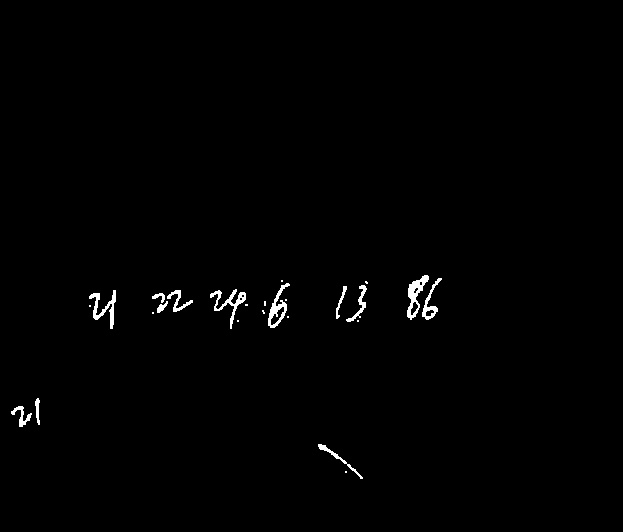 21 22 24 6 13 86
21